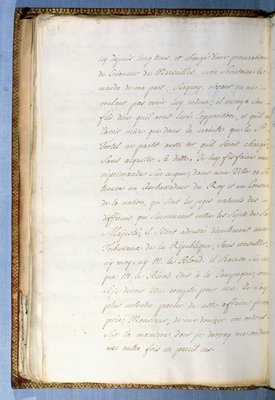 icy depuis longtems et chargé d'une procuration
du Creancier de Marseilles. mon Secretaire le
manda de ma part; Siaguey, n'ayant ou ne
voulant pas venir luy même, il envoya son
fils dire qu'il avoit levé l'opposition, et qu'il ne
l'avoit mise que dans la crainte que le Sr
Fortel ne partit aussitot qu'il seroit chargé,
sans acquiter sa dette. Je luy fis faire une
reprimande sur ce que, dans une Ville ou se
trouve un Ambassadeur du Roy et un Consul
de la nation, qui sont les juges naturels des
differens qui surviennent entre les Sujets de Sa
Majesté, il s'étoit adressé directement aux
Tribunaux de la Republique, sans consulter
ny moy ny M. le Blond. Il s'excusa sur ce
que M. le Blond étoit à la Campagne,
Je n'ay
plus entendu parler de cette affaire. Je vous
prie, Monsieur, de me donner vos ordres
sur la maniere dont je devray me conduire
une autre fois en pareil cas.